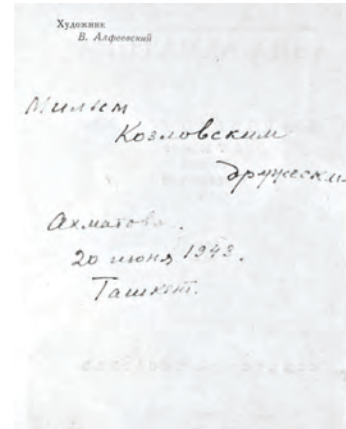 Художник
В. Алфеевский
Милым
Козловским
дружески
Ахматова.
20 июня 1943.
Ташкент.